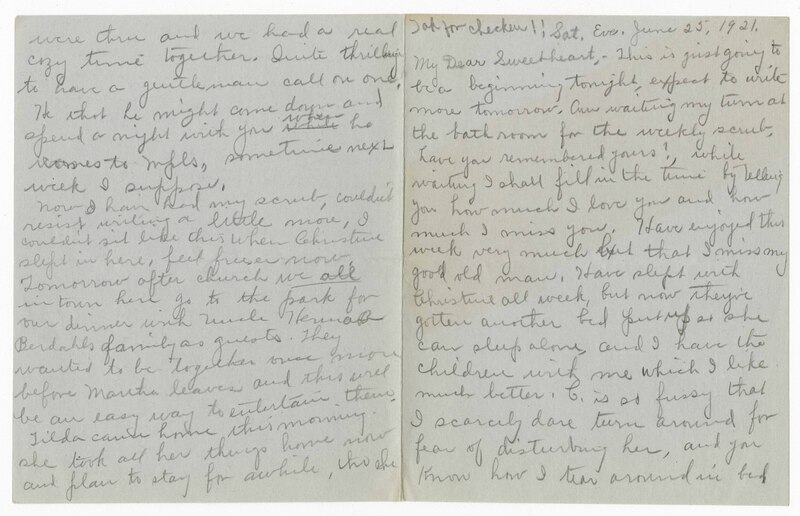 were thru and we had a real
cozy time together. Quite thrilling
to have a gentleman call on one.
Tk that he might come down and
spend a night with you when while he
comes to Mpls, sometime next
week I suppose.
Now I have had my scrub, couldn't
resist writing a little more, I
couldn't sit like this when Christine
slept in here, feel freer now.
Tomorrow after church we all
in town here go to the park for
our dinner with Uncle Herman
Berdahls family as guests. They
wanted to be together once more
before Martha leaves and this will
be an easy way to entertain them.
Tilda came home this morning.
she took all her things home now
and plan to stay for awhile, tho she
Tak for checken!! Sat. Eve. June 25, 1921.
My Dear Sweetheart,- This is just going to
be a beginning tonight, expect to write
more tomorrow. Am waiting my turn at
the bath room for the weekly scrub,
have you remembered yours?, while
waiting I shall fill in the time by telling
you how much I love you and how
much I miss you. Have enjoyed this
week very much but that I miss my
good old man. Have slept with
Christine all week, but now they've
gotten another bed put up so she
can sleep alone, and I have the
children with me which I like
much better. C. is so fussy that
I scarcely dare turn around for
fear of disturbing her, and you
know how I tear around in bed